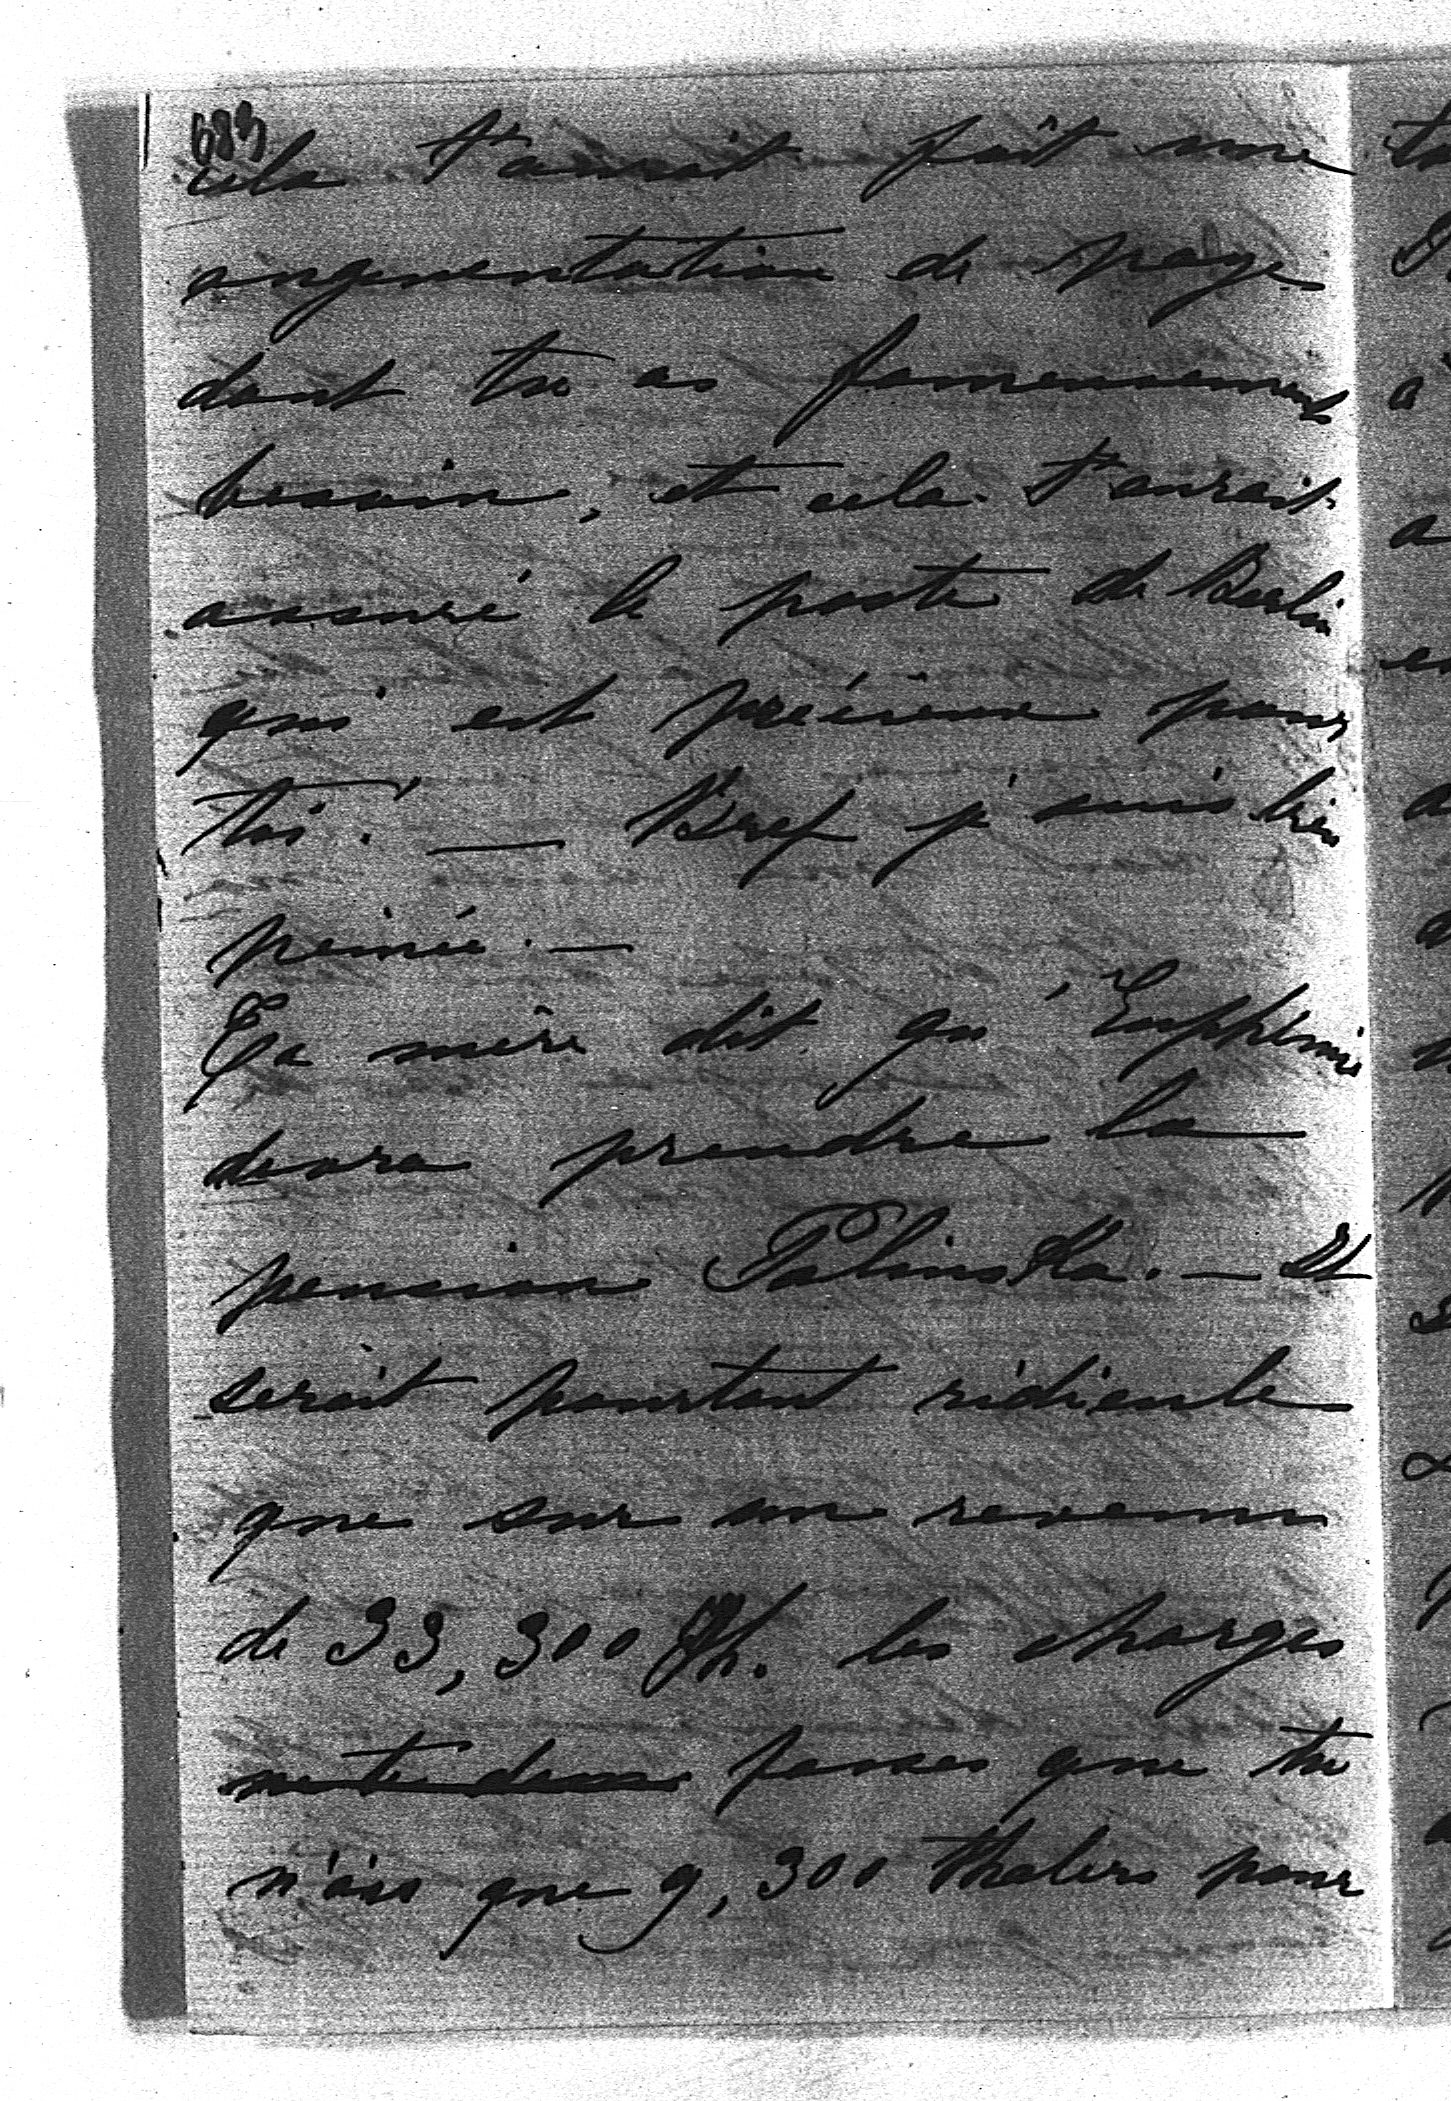 683
cela t'aurait fait une
augmentation de paye
dont tu as fameusement
besoin, et cela t'aurait
assuré le poste de Berlin
qui est précieux pour
toi. — Bref j' suis bien
peinée. —
Ta mère dit qu'Euphémie
devra prendre la
pension Palinska. — Il
serait pourtant ridicule
que sur un revenu
de 33,300 Th. les charges
fasses que tu
n'aies que 9,300 thalers pour